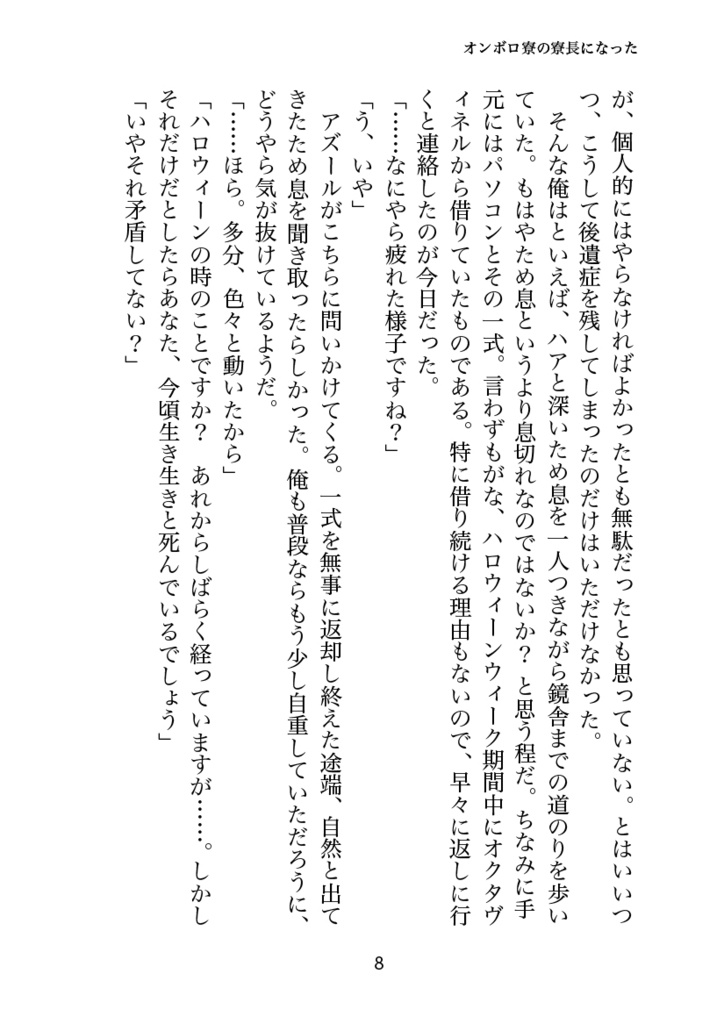 オンボロ寮の寮長になった
が、個人的にはやらなければよかったとも無駄だったとも思っていない。とはいいつ
つ、こうして後遺症を残してしまったのだけはいただけなかった。
　そんな俺はといえば、ハアと深いため息を一人つきながら鏡舎までの道のりを歩い
ていた。もはやため息というより息切れなのではないか？　と思う程だ。ちなみに手
元にはパソコンとその一式。言わずもがな、ハロウィーンウィーク期間中にオクタヴ
ィネルから借りていたものである。特に借り続ける理由もないので、早々に返しに行
くと連絡したのが今日だった。
「……なにやら疲れた様子ですね？」
「う、いや」
　アズールがこちらに問いかけてくる。一式を無事に返却し終えた途端、自然と出て
きたため息を聞き取ったらしかった。俺も普段ならもう少し自重していただろうに、
どうやら気が抜けているようだ。
「……ほら。多分、色々と動いたから」
「ハロウィーンの時のことですか？　あれからしばらく経っていますが……。しかし
それだけだとしたらあなた、今頃生き生きと死んでいるでしょう」
「いやそれ矛盾してない？」
8